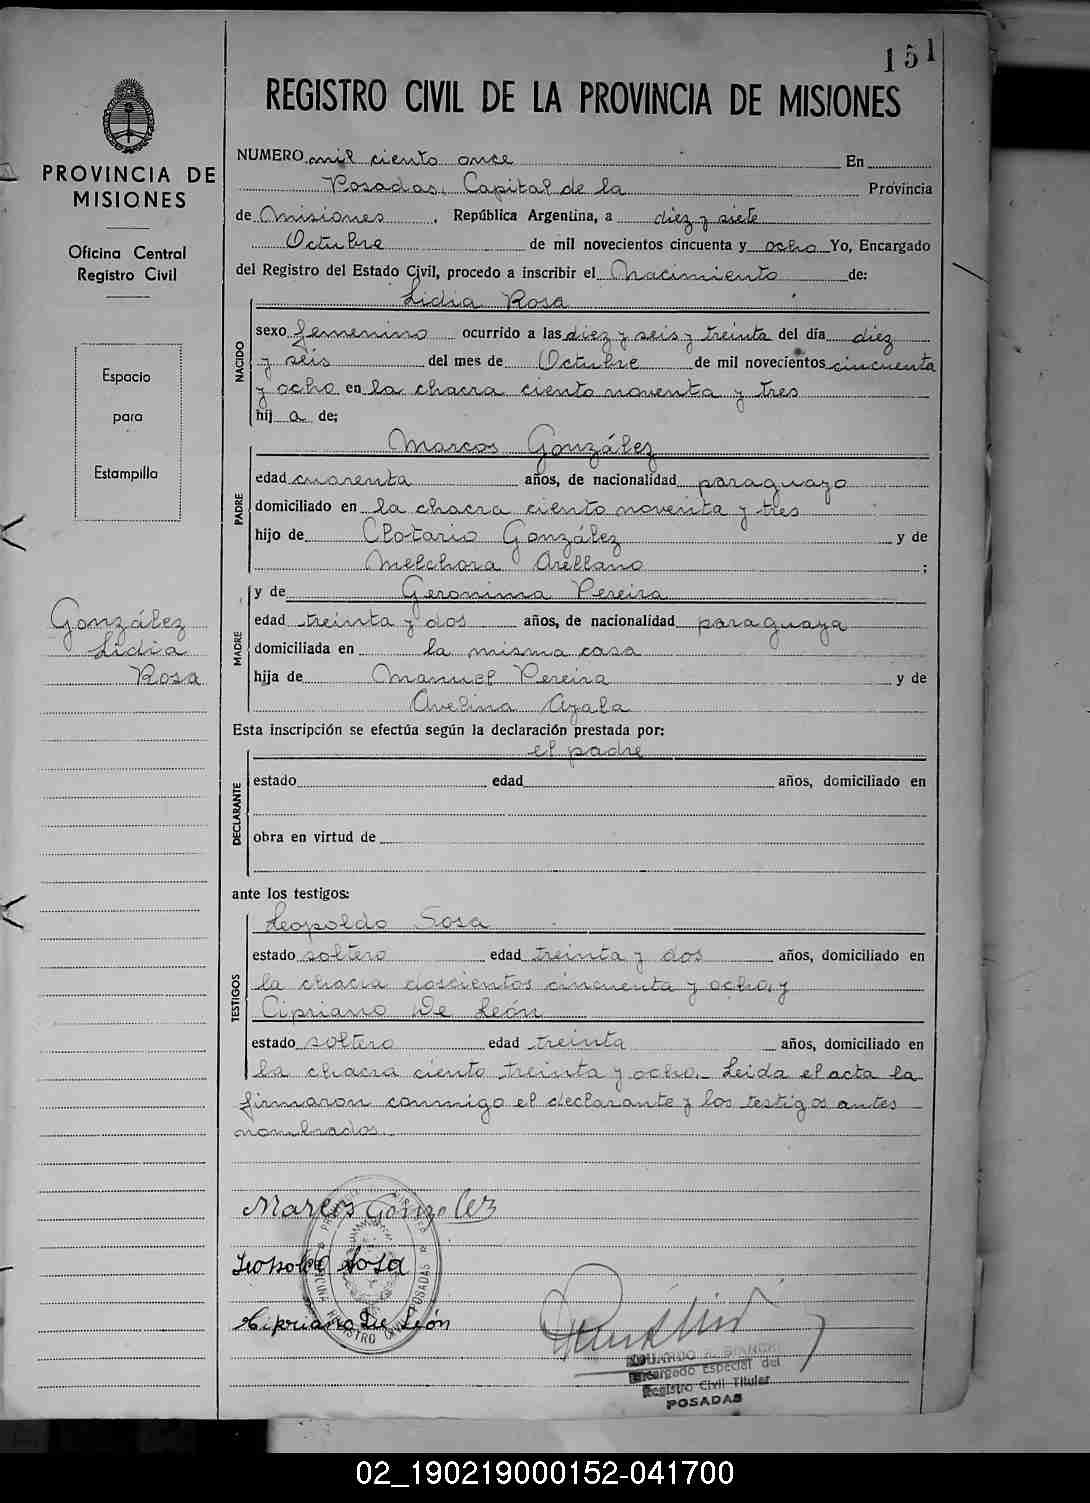 151
REGISTRO CIVIL DE LA PROVINCIA DE MISIONES
PROVINCIA DE
MISIONES
Oficina Central
Registro Civil
Espacio
para
Estampilla
González
Lidia
Rosa
NUMERO mil ciento once En
Posadas, Capital de la Provincia
de Misiones, República Argentina, a diez y siete
Octubre de mil novecientos cincuenta y ocho Yo, Encargado
del Registro del Estado Civil, procedo a inscribir el Nacimiento de:
Lidia Rosa
NACIDO
sexo femenino ocurrido a las diez y seis y treinta del día diez
y seis del mes de Octubre de mil novecientos cincuenta
y ocho en la chacra ciento noventa y tres
hij a de;
Marcos González
PADRE
edad cuarenta años, de nacionalidad paraguayo
domiciliado en la chacra ciento noventa y tres
hijo de Clotario González y de
Melchora Arellano ;
y de Geronima Pereira
MADRE
edad treinta y dos años, de nacionalidad paraguaya
domiciliada en la misma casa
hija de Manuel Pereira y de
Avelina Ayala
Esta inscripción se efectúa según la declaración prestada por:
el padre
DECLARANTE
estado edad años, domiciliado en
obra en virtud de
ante los testigos:
Leopoldo Sosa
TESTIGOS
estado soltero edad treinta y dos años, domiciliado en
la chacra doscientos cincuenta y ocho, y
Cipriano De León
estado soltero edad treinta años, domiciliado en
la chacra ciento treinta y ocho.- Leida el acta la
firmaron conmigo el declarante y los testigos antes
nombrados.-
Marcos Gonzolez
Leopoldo Sosa
Cipriano De León
REGISTRO CIVIL POSADAS
EDUARDO R. BIANCHI
Encargado Especial del
Registro Civil Titular
POSADAS
02_190219000152-041700